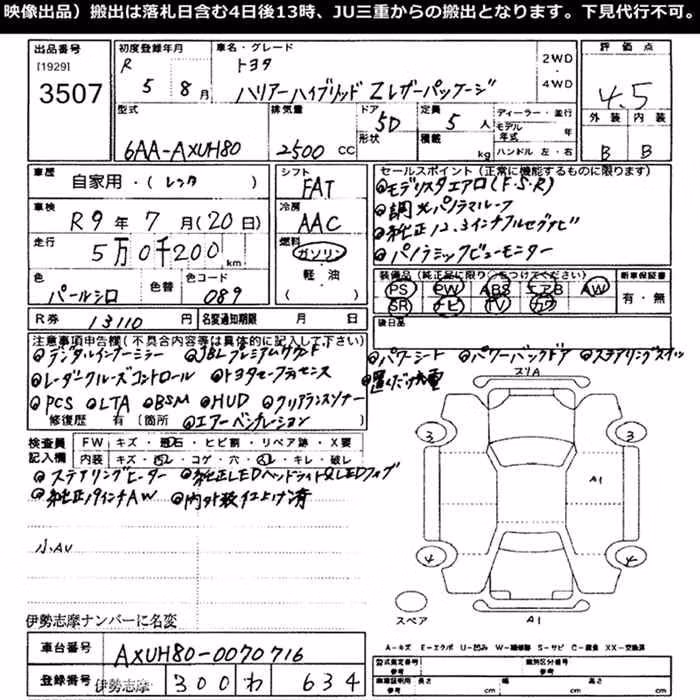 映像出品）搬出は落札日含む4日後13時、JU三重からの搬出となります。下見代行不可。
出品番号
[1929]
3507
初度登録年月
R 5年 8月
車名・グレード
トヨタ
ハリアーハイブリッド Zレザーパッケージ
2WD
・
4WD
評価点
4.5
外装 内装
B B
型式
6AA-AXUH80
排気量
2500 CC
ドア形状
5D
定員 5人
積載 kg
ディーラー・並行
モデル年式 年
ハンドル 左・右
車歴
自家用・(レンタ )
車検
R9年 7月(20日)
走行
5万0千200km
色
パールシロ
色替
色コード
089
シフト
FAT
冷房
AAC
燃料
ガソリン
軽・油
( )
セールスポイント（正常に機能するものに限ります）
◎モデリスタエアロ(F・S・R)
◎調光パノラマルーフ
◎純正12.3インチフルセグナビ
◎パノラミックビューモニター
装備品（純正品に限り○をつけてください）
PS PW ABS エアB AW
SR ナビ TV カワ
新車保証書
有・無
R券 13110円
名変通知期限 月 日
後日品
注意事項申告欄（不具合内容等は具体的に記入して下さい）
◎デジタルインナーミラー ◎JBLプレミアムサウンド ◎パワーシート ◎パワーバックドア ◎ステアリングスイッチ
◎レーダークルーズコントロール ◎トヨタセーフティセンス ◎置くだけ充電
◎PCS ◎LTA ◎BSM ◎HUD ◎クリアランスソナー
修復歴 有（箇所 ◎エアーベンチレーション )
検査員記入欄
FW キズ・飛石・ヒビ割・リペア跡・X要
内装 キズ・汚レ・コゲ・穴・スレ・キレ・破レ
◎ステアリングヒーター ◎純正LEDヘッドライト&LEDフォグ
◎純正19インチAW ◎内外装仕上げ済
小AU
リヤA
3 3
A1
4 4
スペア
A1
伊勢志摩ナンバーに名変
車台番号 AXUH80-0070716
登録番号 伊勢志摩 300 わ 634
A-キズ E-エクボ U-凹み W-補修跡 S-サビ C-腐食 XX-交換済
型式指定番号
参考
類別区分番号
参考
車庫証明用
参考
長さ cm
幅 cm
高さ cm